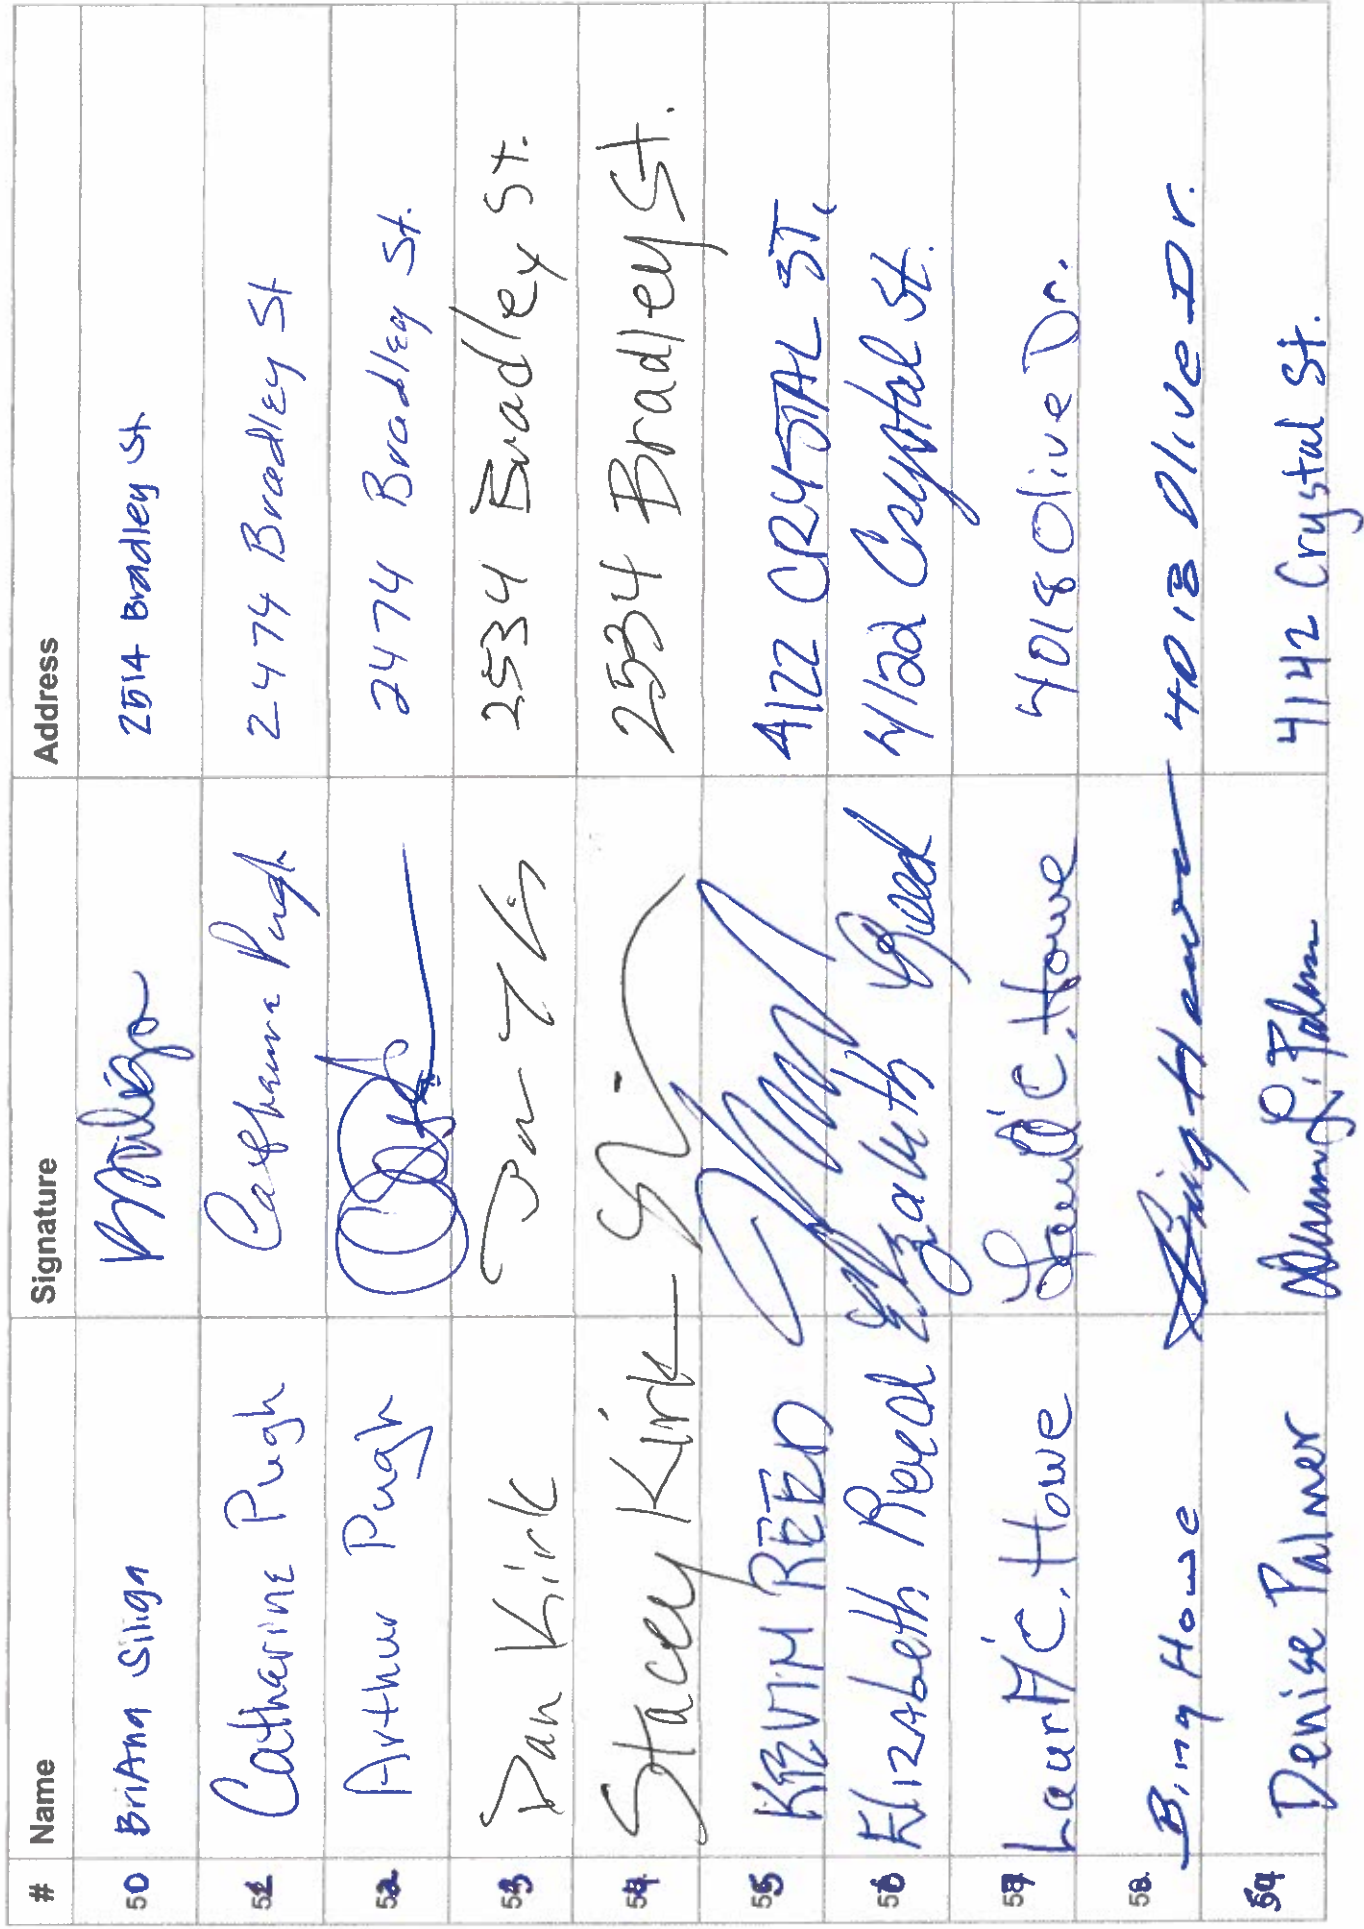 # Name Signature Address
50 BriAna Siliga 2514 Bradley St
51 Catharine Pugh Catharine Pugh 2474 Bradley St
52 Arthur Pugh 2474 Bradley St.
53 Dan Kirk 2534 Bradley St.
54 Stacey Kirk 2534 Bradley St.
55 KEVIN REED 4122 CRYSTAL ST.
56 Elizabeth Reed Elizabeth Reed 4122 Crystal St.
57 C. Howe C. Howe 4018 Olive Dr.
58 Bing Howe Bing Howe 4018 Olive Dr.
59 Denise Palmer 4142 Crystal St.